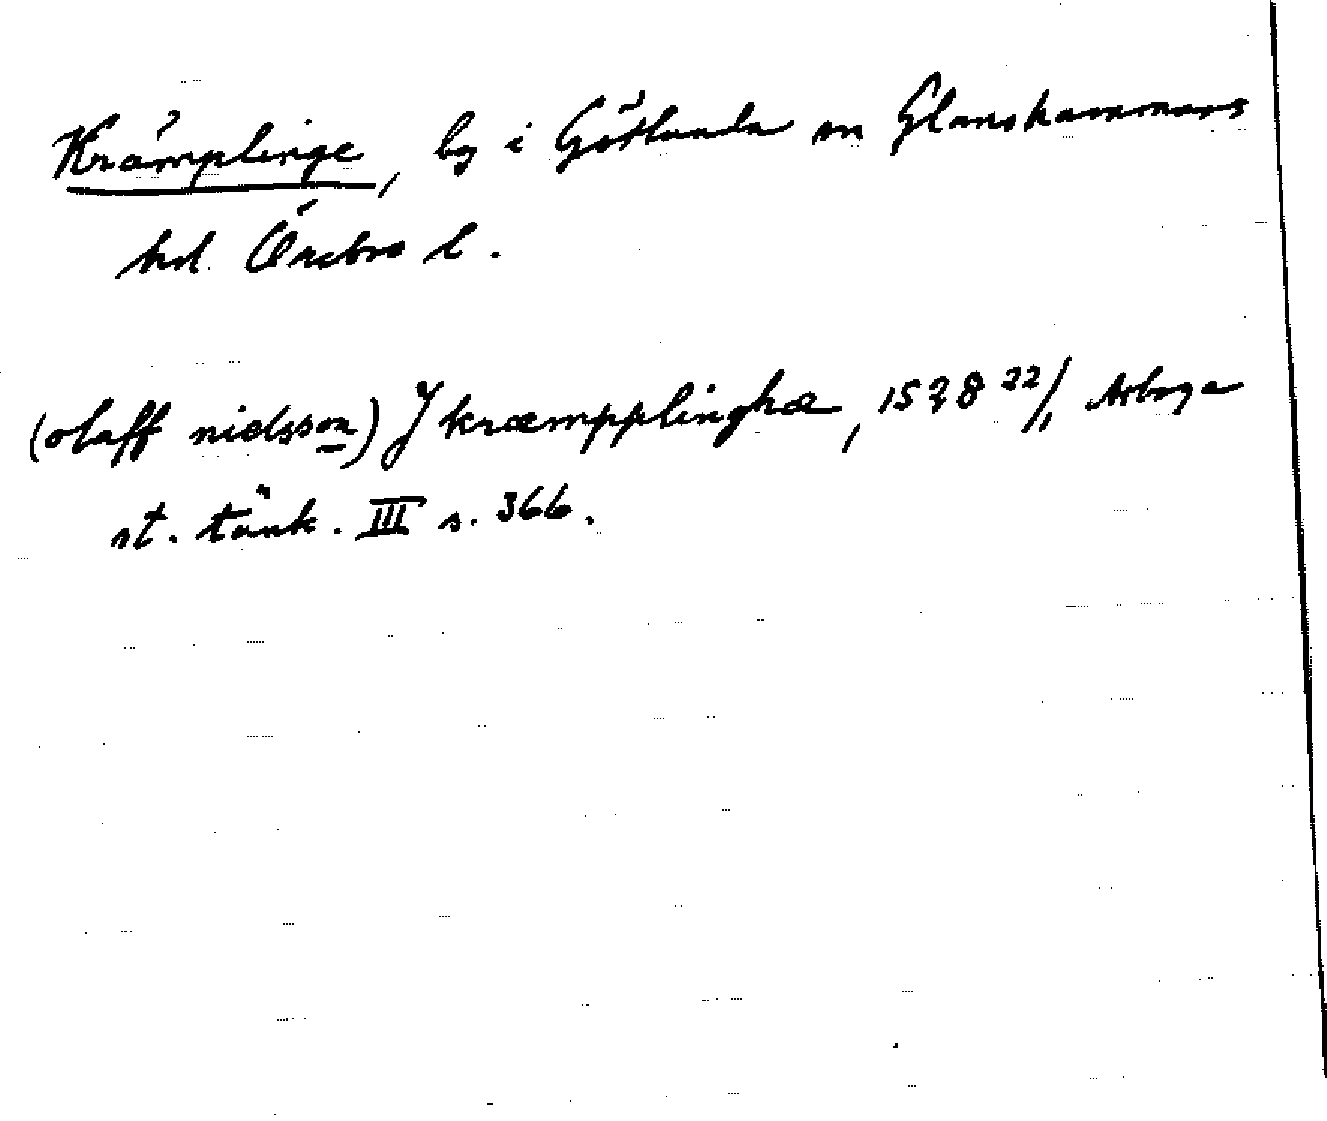 Krämplinge, by i Götlunda sn Glanshammars
hd. Örebro l.
(olaff nielsson) J kræmpplinghæ, 1528 22/1 Arboga
st. tänk. III s. 366.